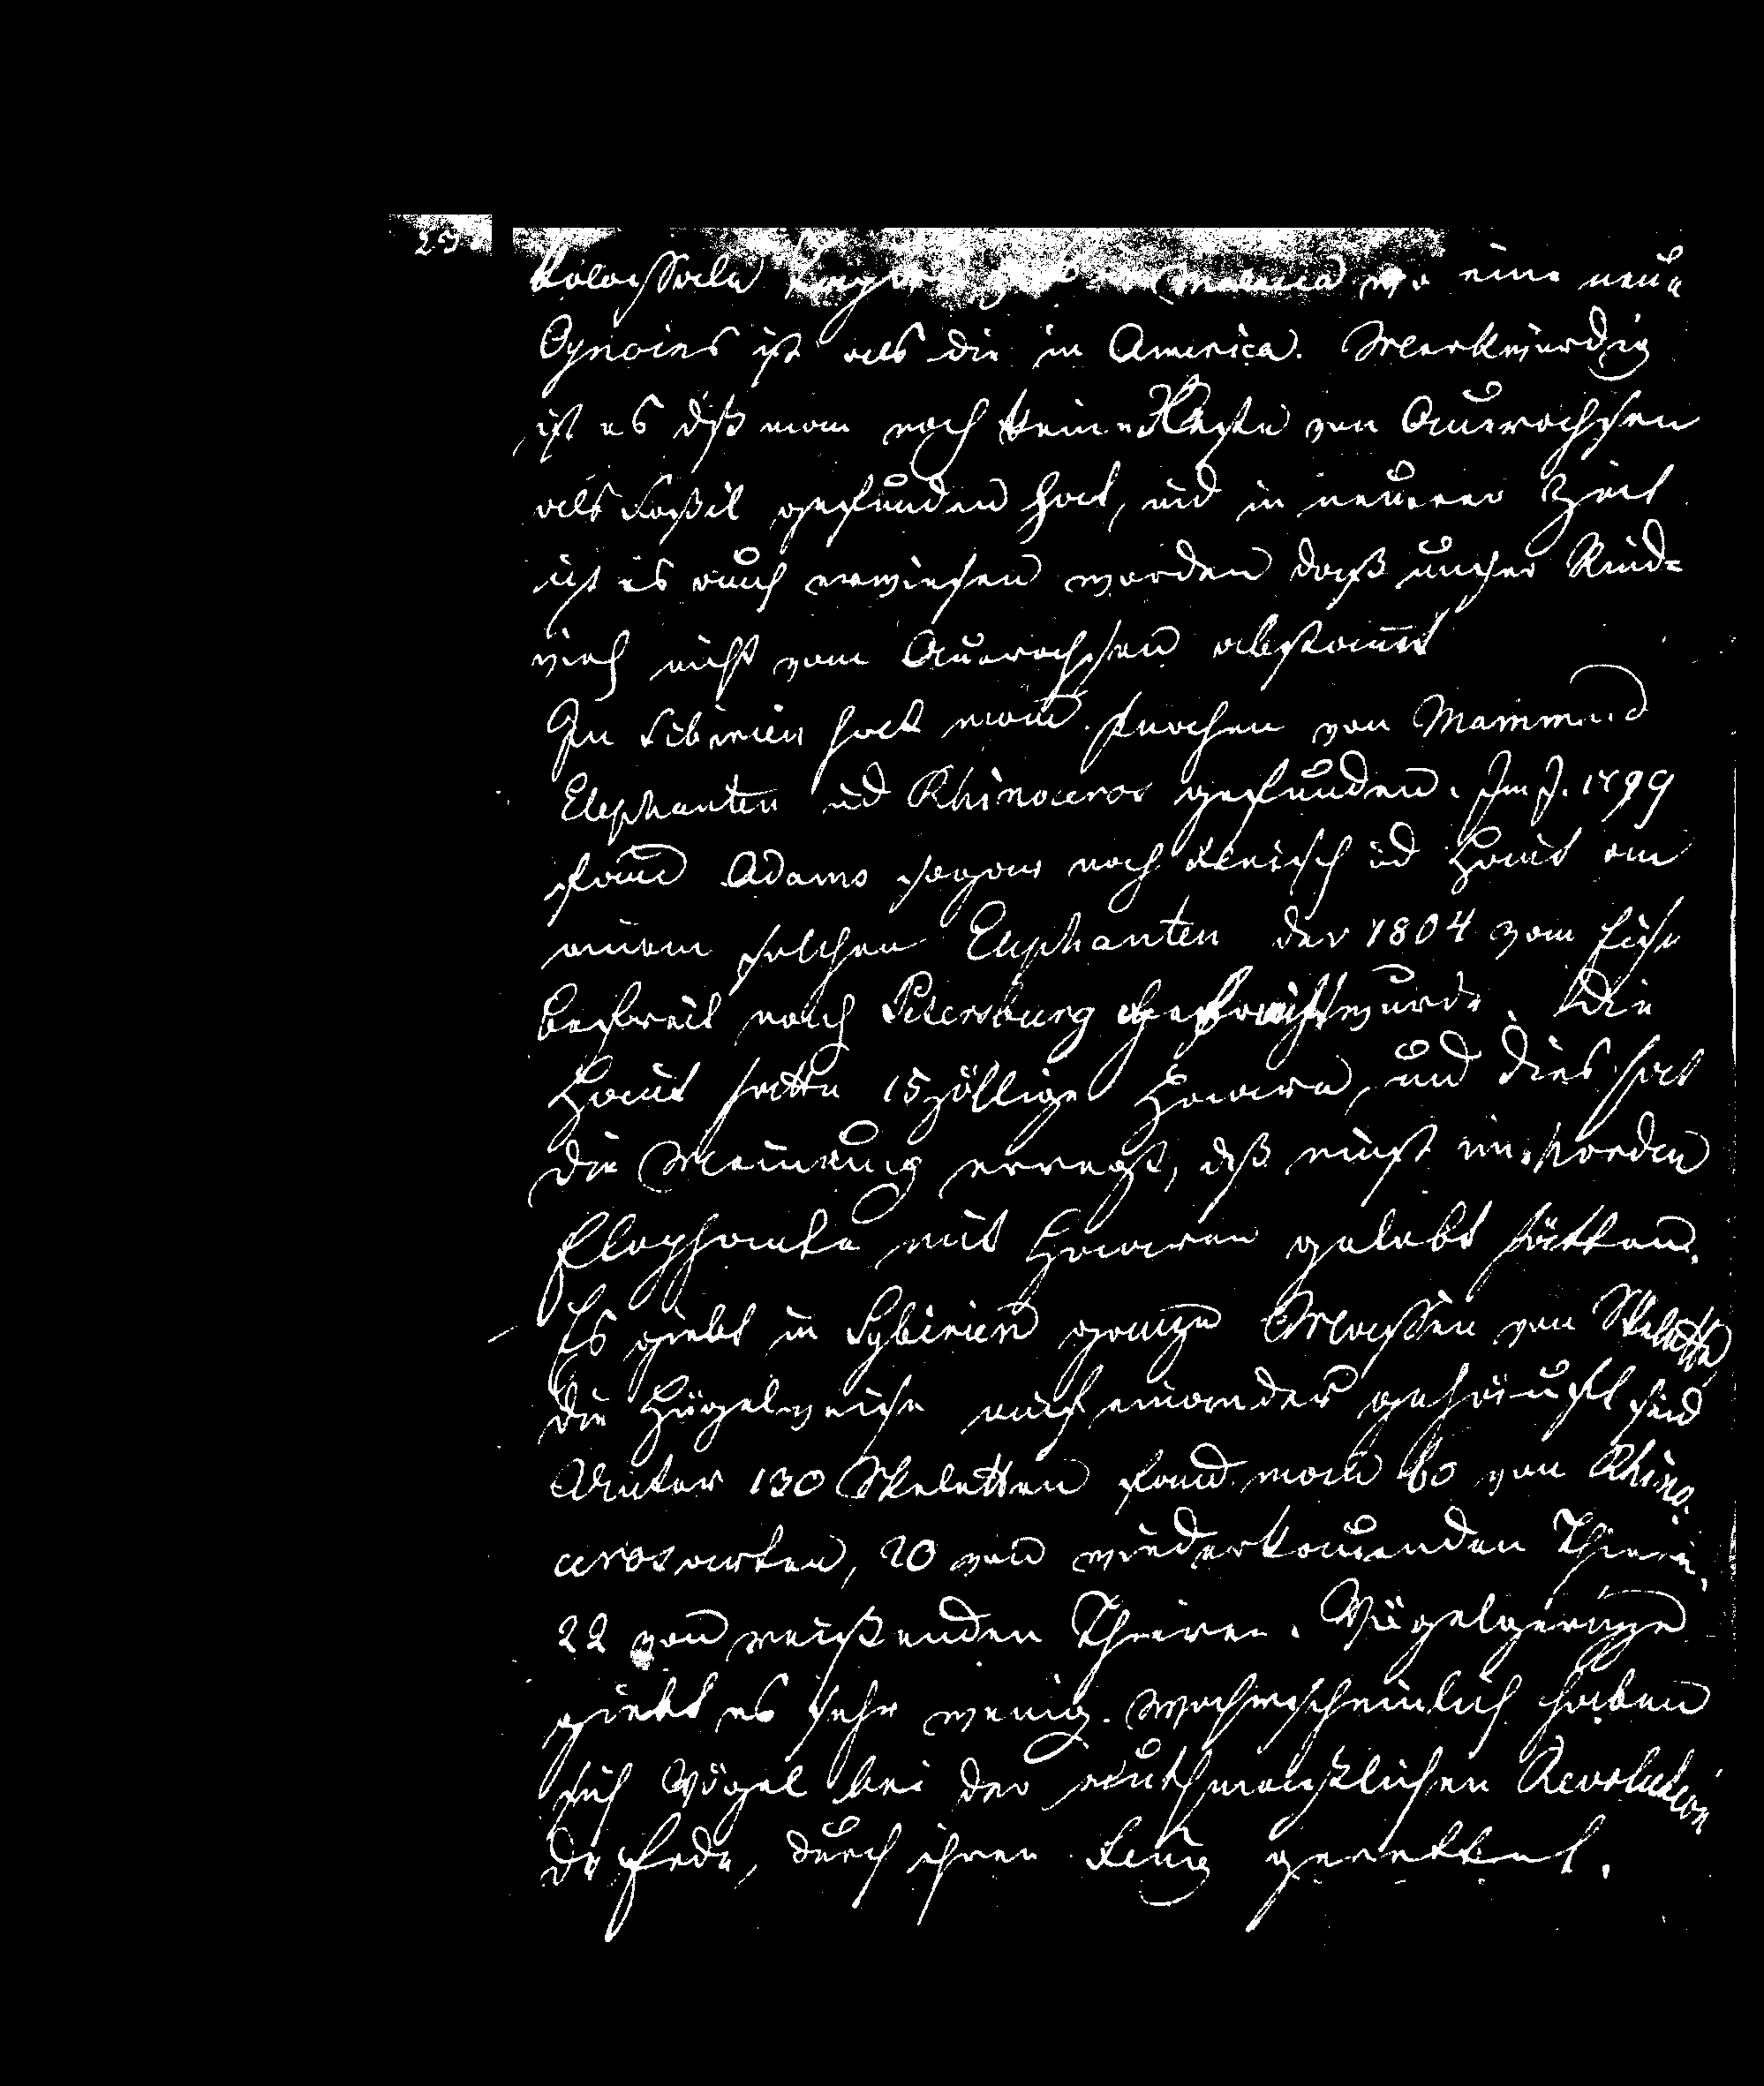 29
kolossale eine neue
Species ist als die in America. Merkwürdig
ist es dß man noch keine Reste von Auerochsen
als Foßil gefunden hat, und in neuerer Zeit
ist es auch erwiesen worden daß unser Rind=
vieh nicht vom Auerochsen abstammt
In Sibirien hat man Knochen von Mammud
Elephanten und Rhinoceros gefunden. Im J. 1799
fand Adams sogar noch Fleisch und Haut an
einem solchen Elephanten der 1804 vom Eise
befreit nach Petersburg gebracht wurde. Die
Haut hatte 15zöllige Haare, und dies hat
die Meinung erregt, dß einst im Norden
Elephante mit Haaren gelebt hätten.
Es giebt in Sybirien ganze Massen von Skelette
die Hügelweise auf einander gehäuft sind
Unter 130 Skeletten fand man 60 von Rhino.
cerosarten, 20 von wiederkauenden Thieren,
22 von reißenden Thieren. Vögelgerippe
giebt es sehr wenig. Wahrscheinlich haben
sich Vögel bei der muthmaaßlichen Revolution
der Erde, durch ihren Flug gerettet.